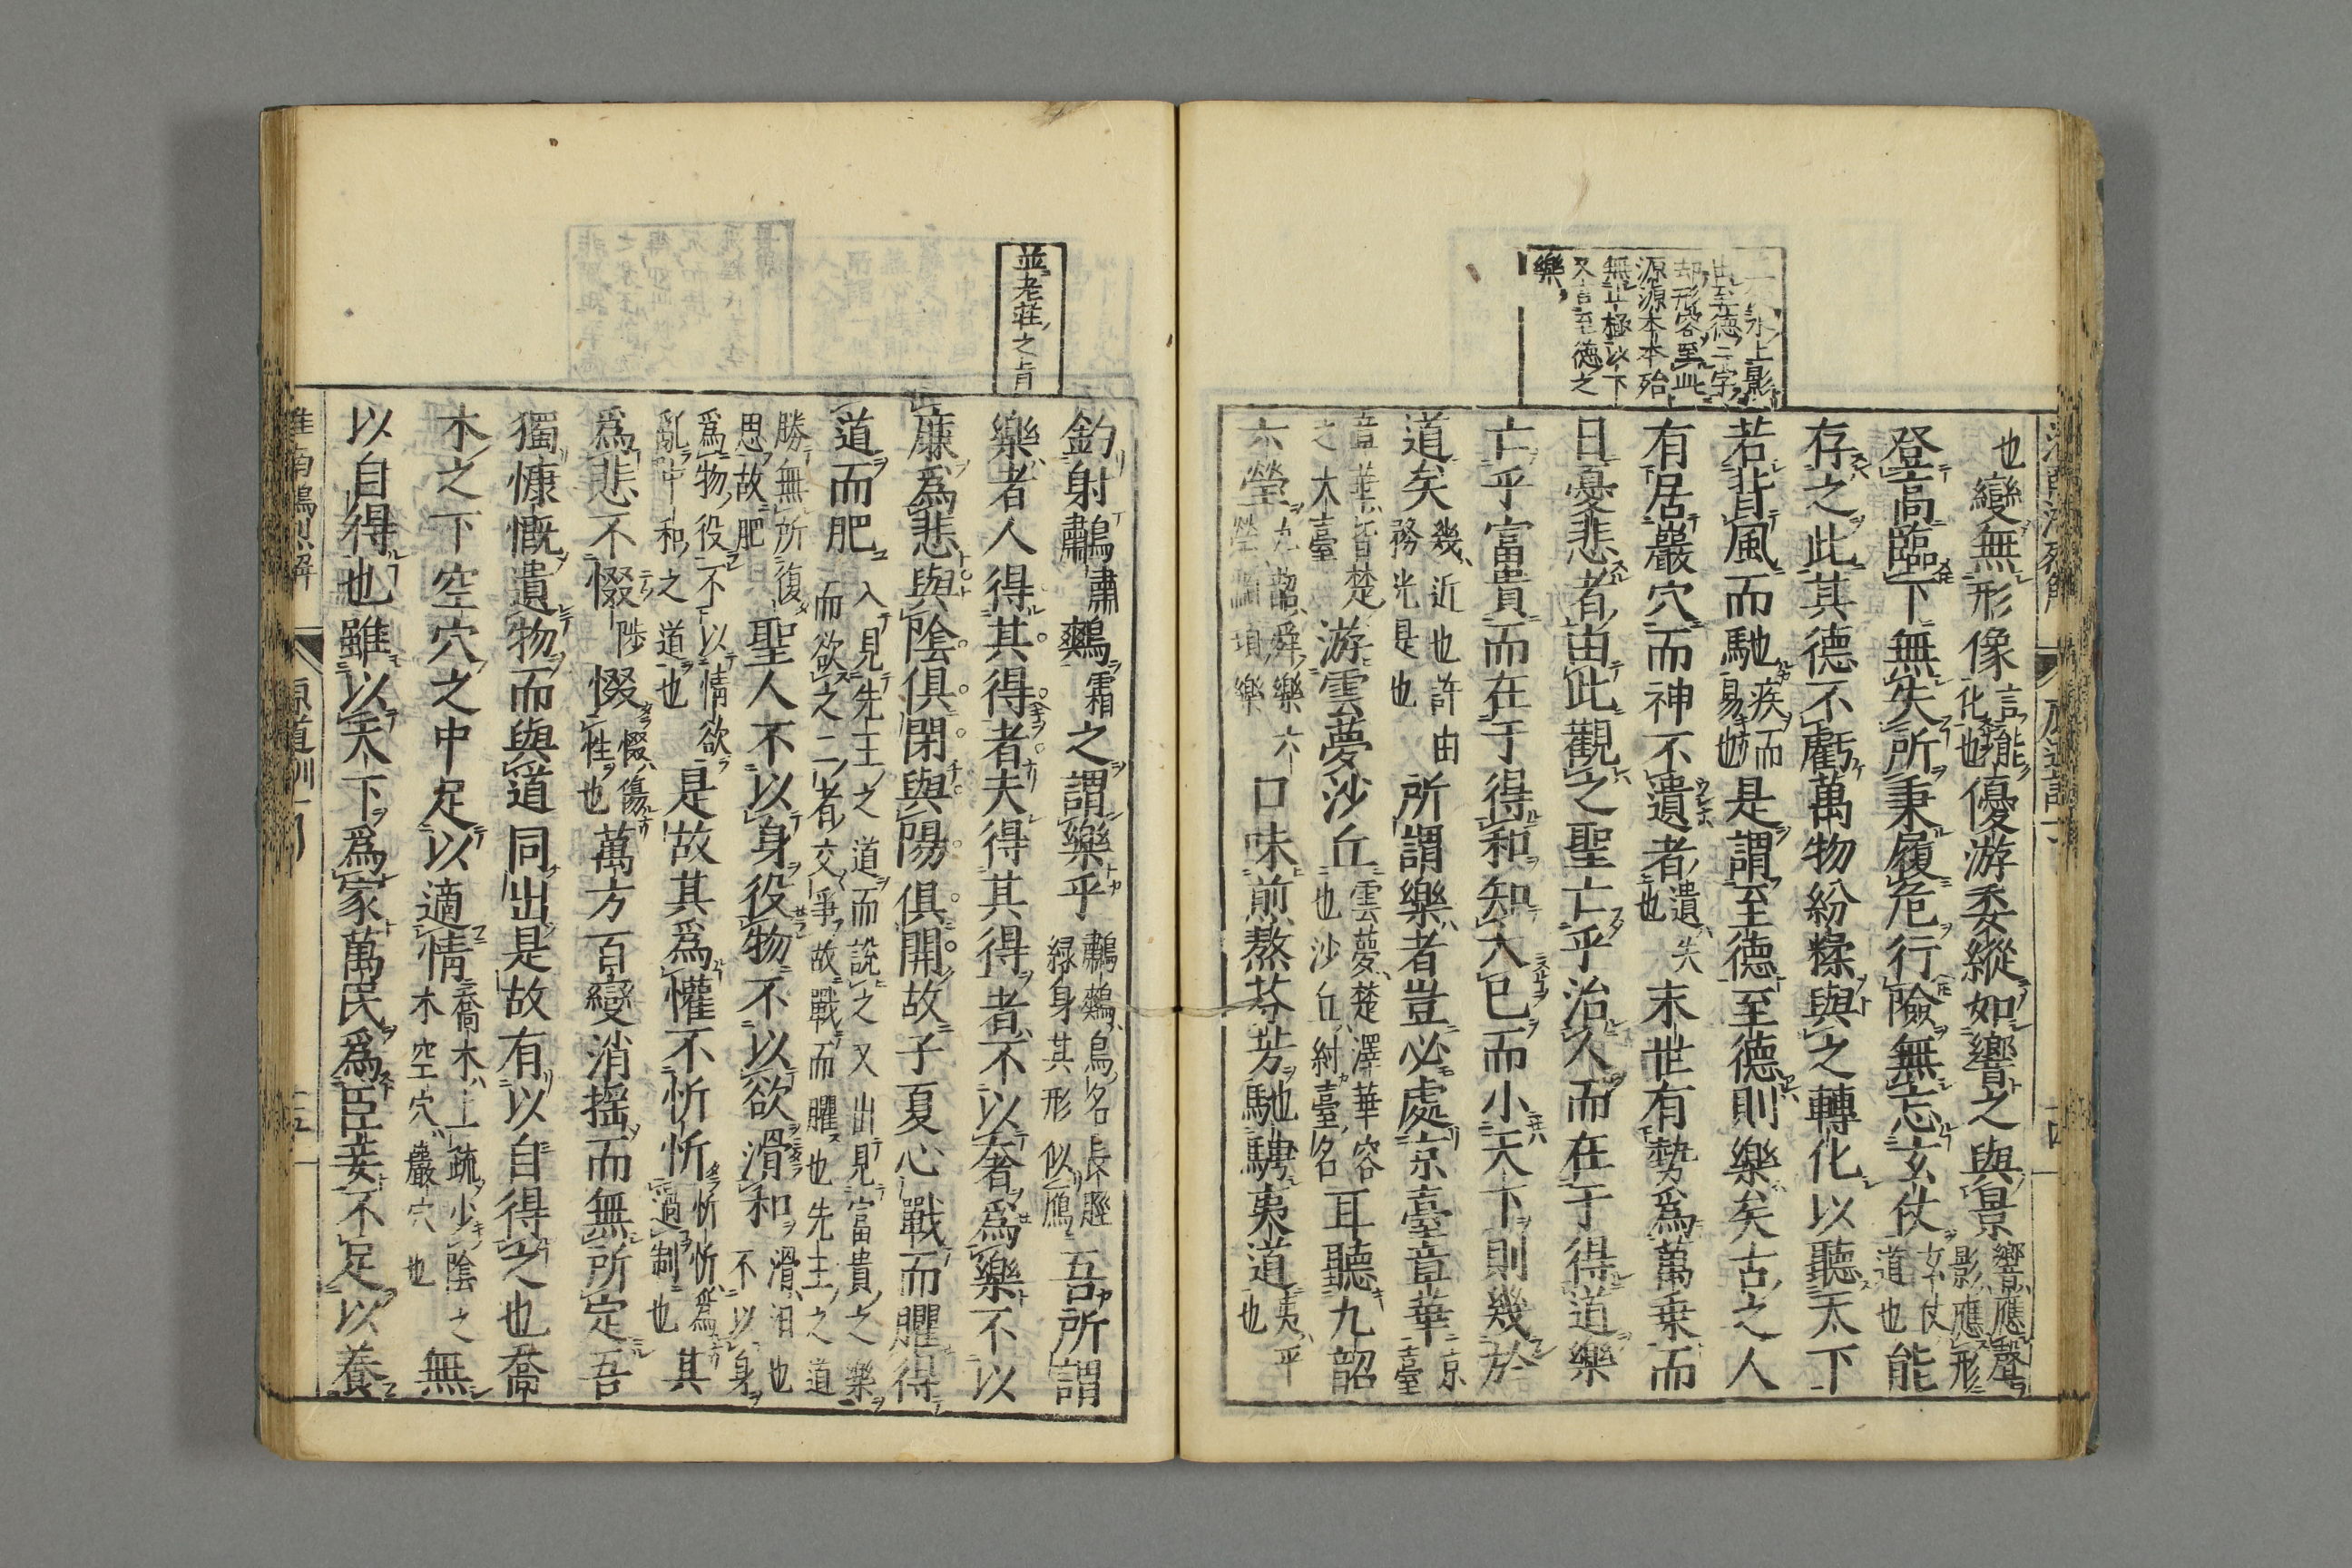 却形容至此
源源本本殆
無止極以下
又言至德之
樂
也變無形像言能化也優游委縱如響之與景響應聲影應形
登高臨下無失所秉履危行險無忘玄仗玄仗道也能
存之此其德不虧萬物紛糅與之轉化以聽天下
若背風而馳疾而易也是謂至德至德則樂矣古之人
有居巖穴而神不遺者遺失也末世有勢爲萬乗而
日憂悲者由此觀之聖亡乎治人而在于得道樂
亡乎富貴而在于得和知大已而小天下則幾於
道矣幾近也許由務光是也所謂樂者豈必處京臺章華京臺
章華皆楚之大臺游雲夢沙丘雲夢楚澤華容也沙丘紂臺名耳聽九韶
六瑩九韶舜樂六瑩顓頊樂口味煎熬芬芳馳騁夷道夷平也
並老莊之旨
釣射鷫鷫鷞霜之謂樂乎鷫鷞鳥名長脛緑身其形似鴈吾所謂
樂者人得其得者夫得其得者不以奢爲樂不以
廉爲悲與陰俱閉與陽俱開故子夏心戰而臞得
道而肥入見先王之道而説之又出見富貴之樂而欲之二者交爭故戰而臞也先王之道
勝無所復思故肥聖人不以身役物不以欲滑和滑汨也不以身
爲物役不以情欲亂中和之道也是故其爲懽不忻忻忻忻爲過制也其
爲悲不惙陟惙惙傷性也萬方百變消搖而無所定吾
獨慷慨遺物而與道同出是故有以自得之也喬
木之下空穴之中足以適情喬木上疏少陰之木空穴巖穴也無
以自得也雖以天下爲家萬民爲臣妾不足以養